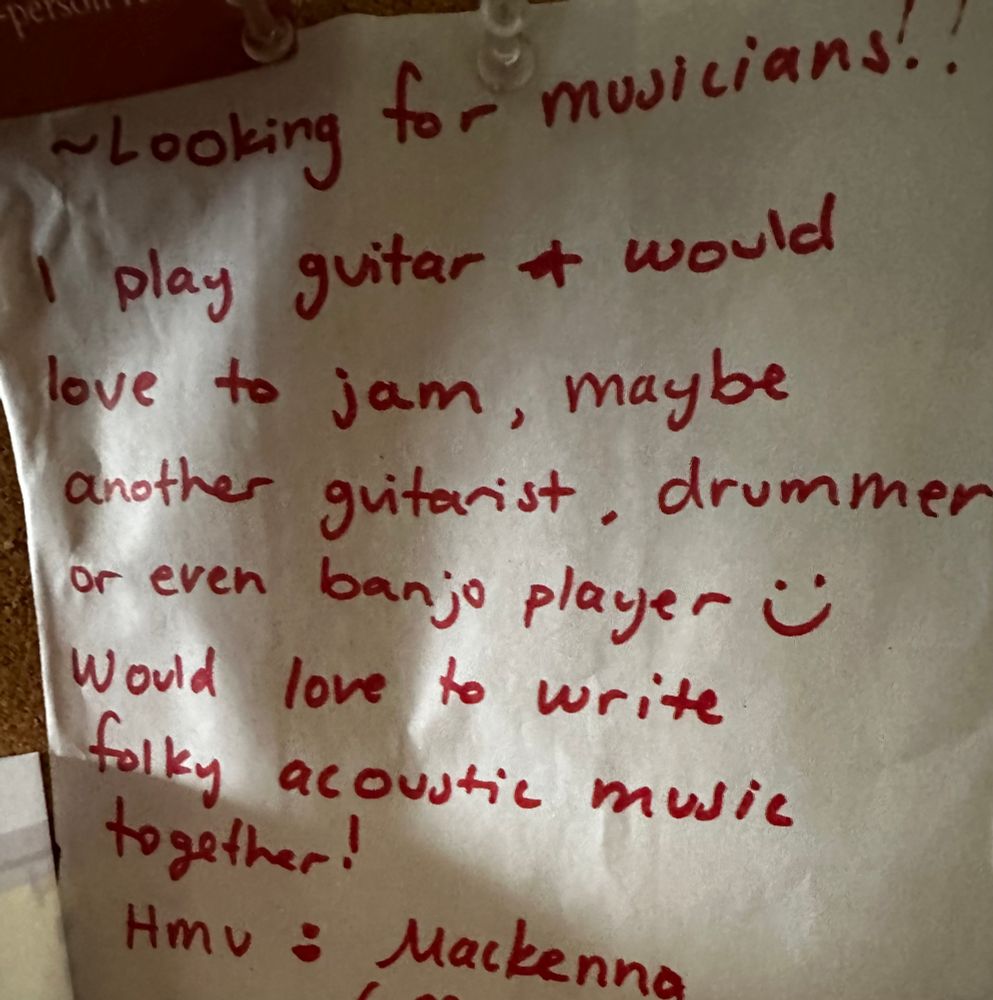 -person
~Looking for musicians!!
I play guitar + would
love to jam, maybe
another guitarist, drummer
or even banjo player :)
Would love to write
folky acoustic music
together!
Hmu : Mackenna